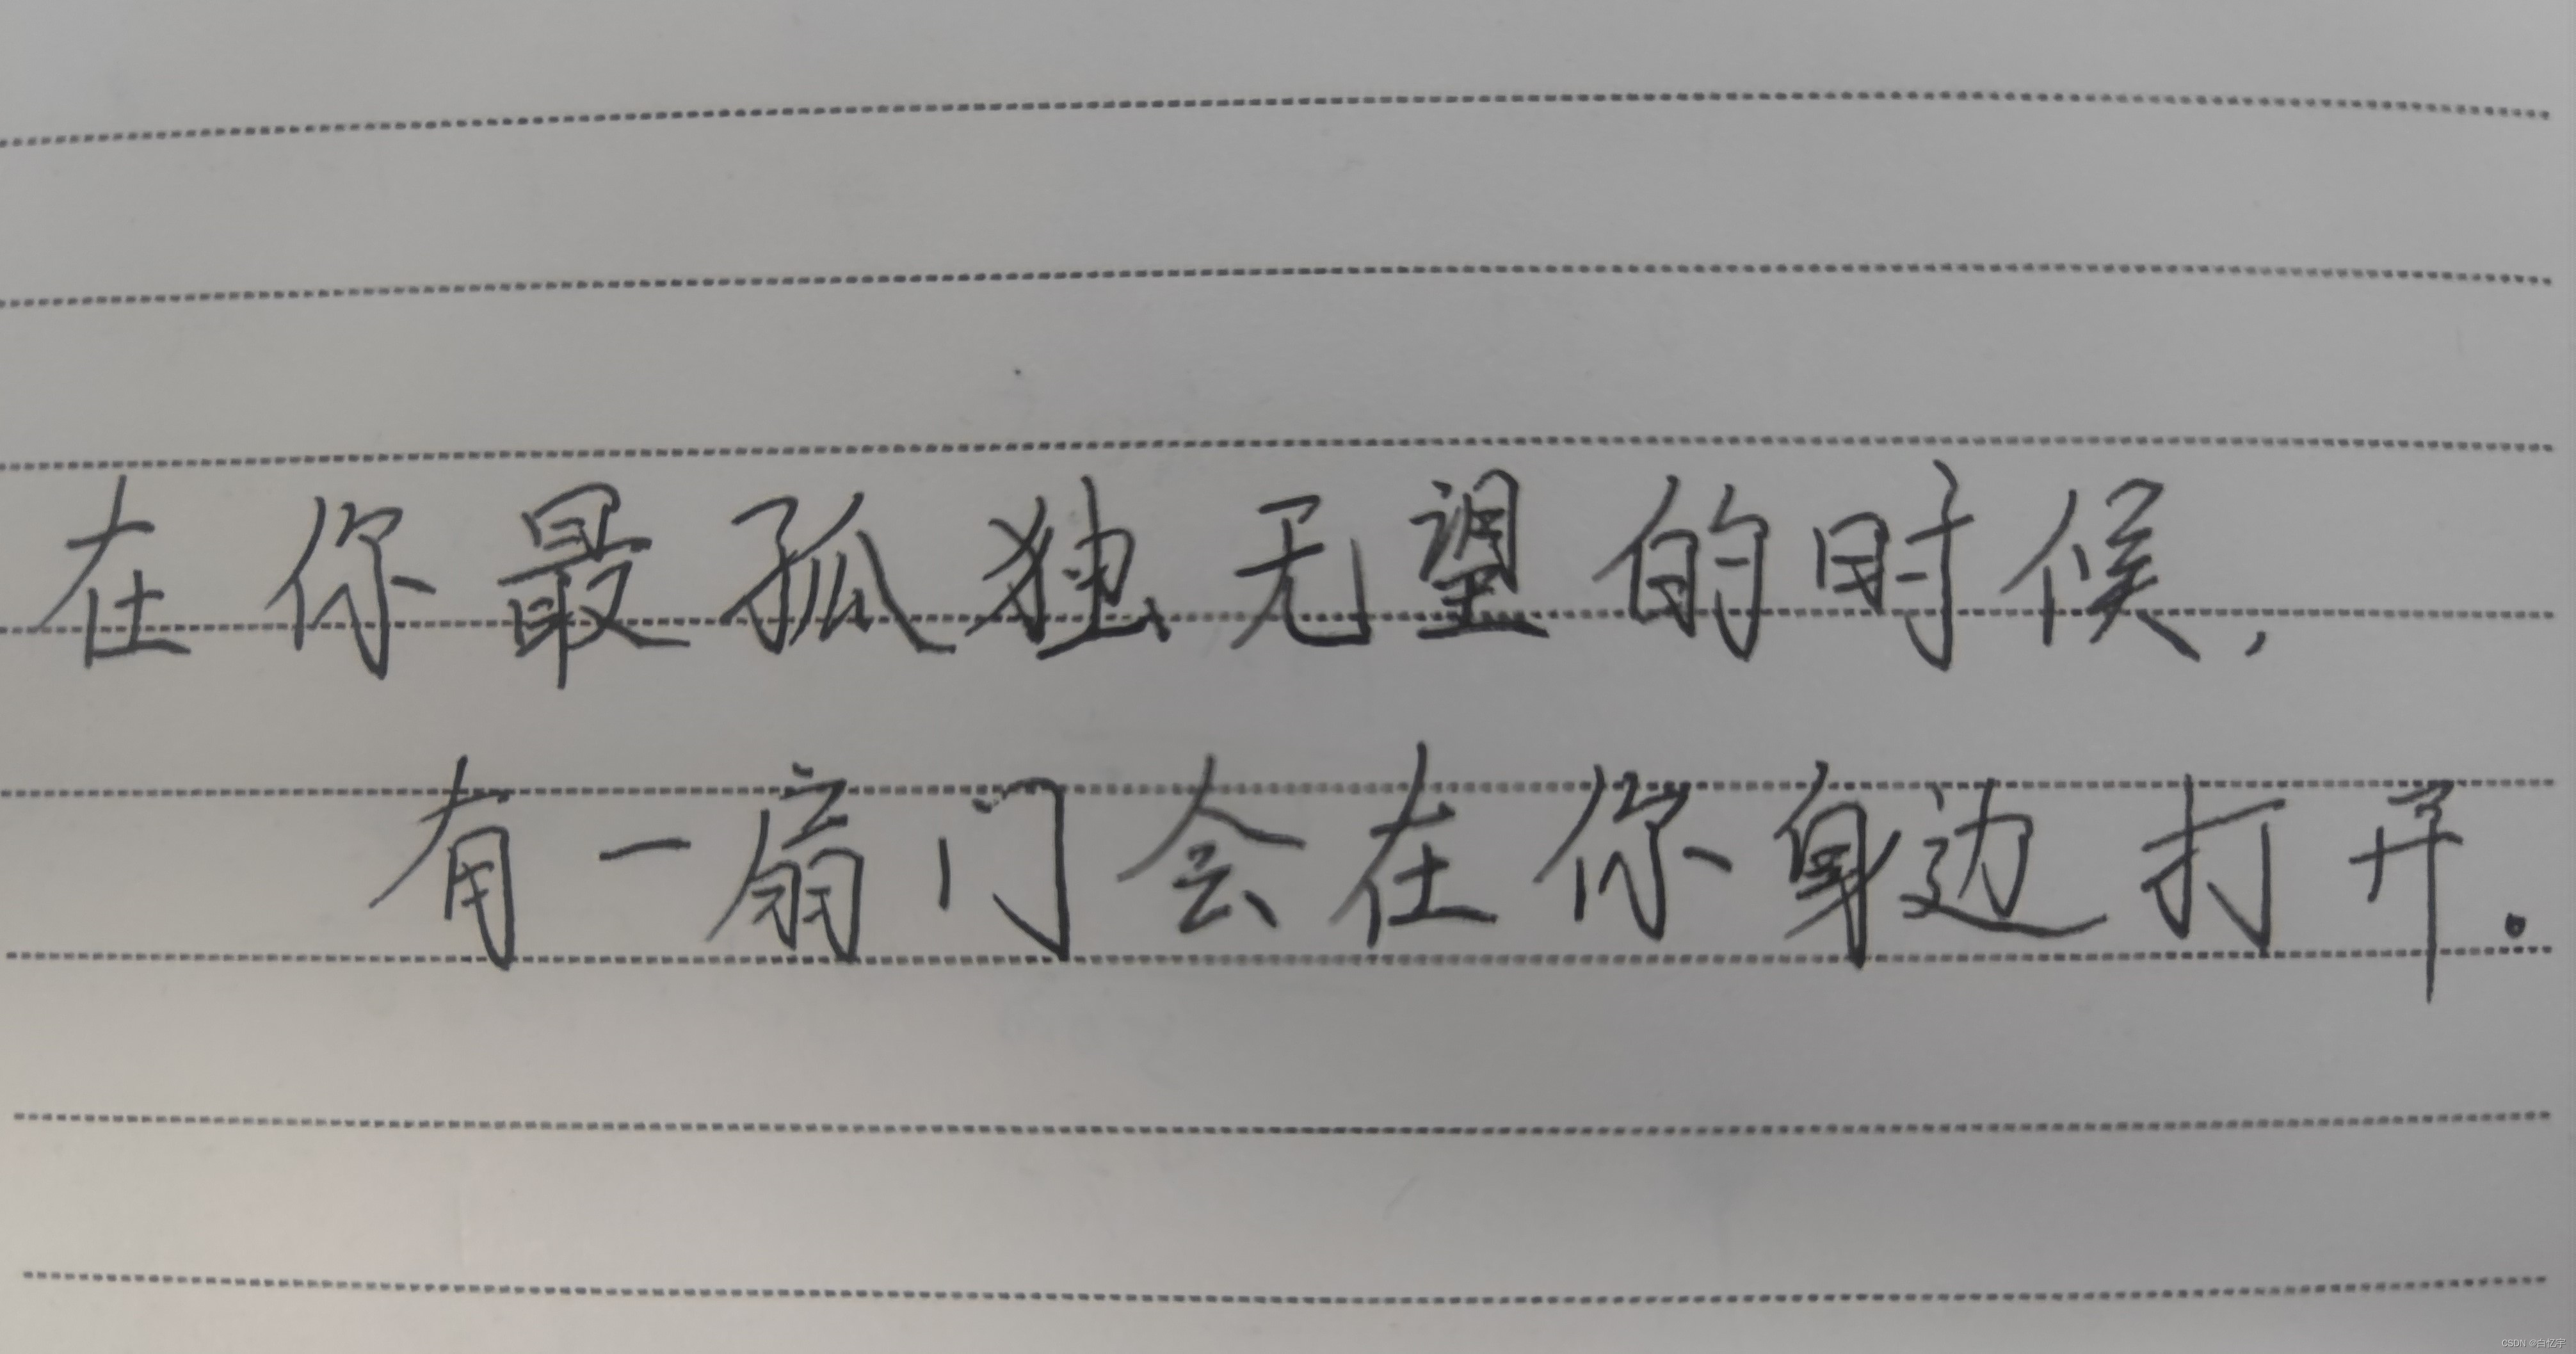 在你最孤独无望的时候,
有一扇门会在你身边打开.
CSDN @白忆宇